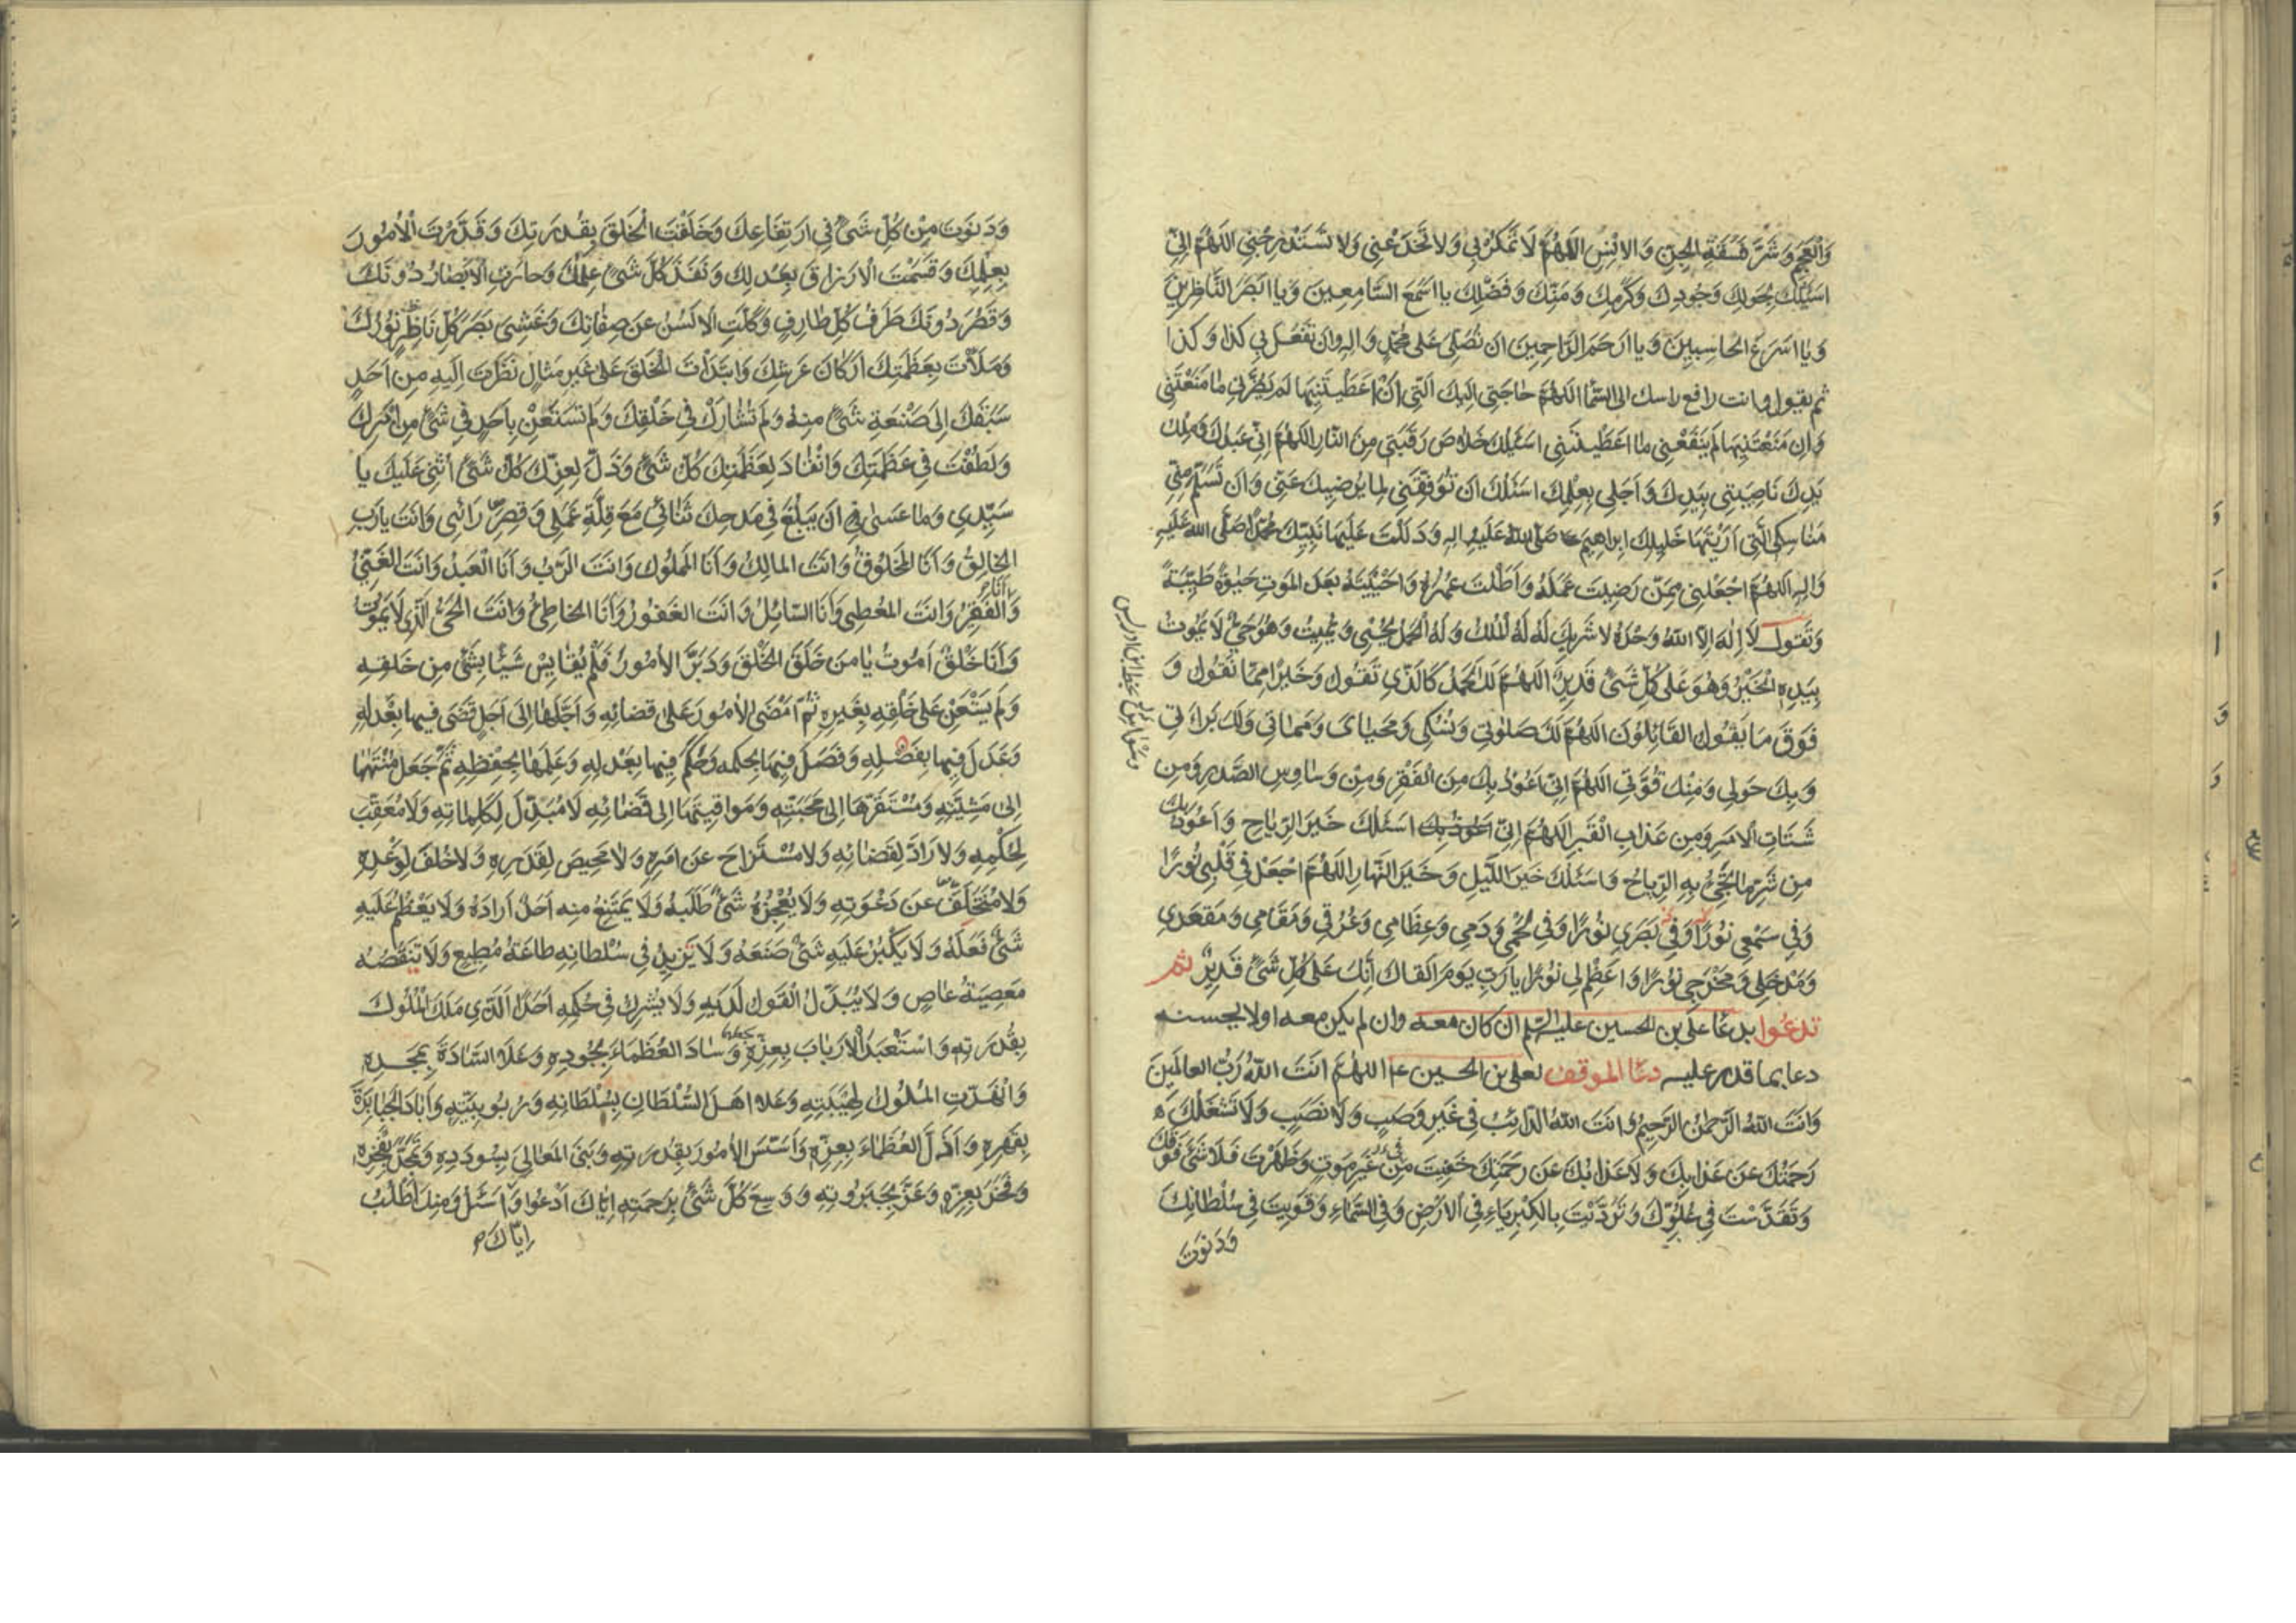 وَالْعَجَمِ وَشَرَّ فَسَقَةِ الجِنِّ وَالانْسِ اللهُمَّ لَا تَمْكُرْ بِي وَلا تَخْدَعْنِي وَلا تَسْتَدْرِجْنِي اللهُمَّ اِنِّي
اَسْئَلُكَ بِحَوْلِكَ وَجُودِكَ وَكَرَمِكَ وَمَنِّكَ وَفَضْلِكَ يا اَسْمَعَ السَّامِعِينَ وَيا اَبْصَرَ النَّاظِرِينَ
وَيا اَسْرَعَ الحاسِبِينَ وَيا اَرْحَمَ الرَّاحِمِينَ اَن تُصَلِّيَ عَلى مُحَمَّدٍ وَالِهِ وَان تَفْعَلَ بِي كَذا وَكَذا
ثم يقول وانت رافع راسك الى السَّمَا اللهُمَّ حاجَتِي اِلَيكَ الَّتِي اِنْ اَعْطَيْتَنِيهَا لَم يَضُرَّنِي ما مَنَعْتَنِي
وَاِن مَنَعْتَنِيهَا لَم يَنفَعْنِي ما اَعْطَيْتَنِي اَسْئَلُكَ خَلاصَ رَقَبَتِي مِنَ النَّارِ اللهُمَّ اِنِّي عَبْدُكَ وَمِلْكُ
يَدِكَ نَاصِيَتِي بِيَدِكَ وَاَجَلِي بِعِلْمِكَ اَسْئَلُكَ اَن تُوَفِّقَنِي لِما يُرْضِيكَ عَنِّي وَاَن تُسَلِّمَ مِنِّي
مَناسِكِي الَّتِي اَرَيْتَهَا خَلِيلَكَ اِبراهِيمَ صَلَّى اللهُ عَلَيهِ وَالِهِ وَدَلَلْتَ عَلَيهَا نَبِيَّكَ مُحَمَّدًا صَلَّى الله عَلَيهِ
وَالِهِ اللهُمَّ اجْعَلْنِي مِمَّن رَضِيتَ عَمَلَهُ وَاَطَلْتَ عُمُرَهُ وَاَحْيَيْتَهُ بَعْدَ المَوتِ حَيٰوةً طَيِّبَةً
وَتَقول لَا اِلٰهَ اِلَّا اللهُ وَحْدَهُ لا شَرِيكَ لَهُ لَهُ الْمُلْكُ وَلَهُ الْحَمْدُ يُحْيِي وَيُمِيتُ وَهُوَ حَيٌّ لَا يَمُوتُ
بِيَدِهِ الْخَيْرُ وَهُوَ عَلى كُلِّ شَيْءٍ قَدِيرٌ اللهُمَّ لَكَ الحَمْدُ كَالَّذِي تَقُولُ وَخَيْرًا مِمَّا نَقُولُ وَ
فَوْقَ مَا يَقُولُ القَائِلُونَ اللهُمَّ لَكَ صَلٰوتِي وَنُسُكِي وَمَحْيايَ وَمَماتِي وَلَكَ بَرَاءَتِي
وَبِكَ حَولِي وَمِنْكَ قُوَّتِي اللهُمَّ اِنِّي اَعُوذُ بِكَ مِنَ الْفَقْرِ وَمِنْ وَسٰاوِسِ الصَّدْرِ وَمِن
شَتَاتِ الْاَمْرِ وَمِن عَذابِ الْقَبْرِ اللهُمَّ اِنِّي اَسْئَلُكَ خَيْرَ الرِّيَاحِ وَاَعُوذُ بِكَ
مِن شَرِّ ما تَجِيءُ بِهِ الرِّيَاحُ وَاَسْئَلُكَ خَيْرَ اللَّيلِ وَخَيْرَ النَّهارِ اللهُمَّ اجْعَلْ فِي قَلْبِي نُورًا
وَفِي سَمْعِي نُورًا وَفِي بَصَرِي نُورًا وَفِي لَحْمِي وَدَمِي وَعِظَامِي وَعُرُوقِي وَمَقَامِي وَمَقْعَدِي
وَمَدْخَلِي وَمَخْرَجِي نُورًا وَاَعْظِمْ لِي نُورًا يا رَبِّ يَومَ اَلقَاكَ اِنَّكَ عَلى كُلِّ شَيْءٍ قَدِيرٌ ثم
تدعوا بدعَا علي بن الحسين عليه السّلم ان كان معه وان لم يكن معه او لا يحسنه
دعا بما قدر عليه دعَا الموقف لعلي بن الحسين ع اللهُمَّ اَنتَ اللهُ رَبُّ العالَمِينَ
وَاَنتَ اللهُ الرَّحمٰنُ الرَّحِيمُ وَاَنتَ اللهُ الدَّائِبُ فِي غَيْرِ وَصَبٍ وَلا نَصَبٍ وَلَا تَشْغَلُكَ
رَحْمَتُكَ عَن عَذابِكَ وَلا عَذابُكَ عَن رَحْمَتِكَ خَفِيتَ مِنْ غَيْرِ مَوتٍ وَظَهَرْتَ فَلا شَيْءَ فَوقَكَ
وَتَقَدَّسْتَ فِي عُلُوِّكَ وَتَرَدَّيْتَ بِالكِبْرِيَاءِ فِي الاَرْضِ وَفِي السَّماءِ وَقَوِيتَ فِي سُلْطانِكَ
وَدَنَوْتَ
وَدَنَوْتَ مِنْ كُلِّ شَيْءٍ فِي ارْتِفَاعِكَ وَخَلَقْتَ الْخَلْقَ بِقُدرَتِكَ وَقَدَّرْتَ الْاُمُورَ
بِعِلْمِكَ وَقَسَمْتَ الْاَرْزاقَ بِعَدْلِكَ وَنَفَذَ كُلَّ شَيْءٍ عِلْمُكَ وَحارَتِ الْاَبْصٰارُ دُونَكَ
وَقَصُرَ دُونَكَ طَرْفُ كُلِّ طارِفٍ وَكَلَّتِ الْاَلْسُنُ عَن صِفَاتِكَ وَغَشِيَ بَصَرَ كُلِّ نَاظِرٍ نُورُكَ
وَمَلَأْتَ بِعَظَمَتِكَ اَرْكانَ عَرْشِكَ وَابْتَدَأْتَ الْخَلْقَ عَلى غَيْرِ مِثالٍ نَظَرْتَ اِلَيهِ مِن اَحَدٍ
سَبَقَكَ اِلى صَنْعَةِ شَيْءٍ مِنهُ وَلَم تُشارَكْ فِي خَلْقِكَ وَلَم تَسْتَعِنْ بِاَحَدٍ فِي شَيْءٍ مِن اَمْرِكَ
وَلَطُفْتَ فِي عَظَمَتِكَ وَانْقَادَ لِعَظَمَتِكَ كُلُّ شَيْءٍ وَذَلَّ لِعِزِّكَ كُلُّ شَيْءٍ اُثْنِي عَلَيكَ يا
سَيِّدِي وَما عَسَى اَن يَبْلُغَ فِي مَدْحِكَ ثَنائِي مَعَ قِلَّةِ عَمَلِي وَقِصَرِ رَائِي وَاَنتَ يا رَبِّ
الخالِقُ وَاَنَا المَخْلُوقُ وَاَنتَ المالِكُ وَاَنَا المَملُوكُ وَاَنتَ الرَّبُّ وَاَنَا الْعَبْدُ وَاَنتَ الغَنِيُّ
وَاَنَا الفَقِيرُ وَاَنتَ المُعْطِي وَاَنَا السّائِلُ وَاَنتَ الغَفُورُ وَاَنَا الخاطِئُ وَاَنتَ الْحَيُّ الَّذِي لَا يَمُوتُ
وَاَنَا خَلْقٌ اَمُوتُ يا مَن خَلَقَ الْخَلْقَ وَدَبَّرَ الاُمُورَ فَلَمْ يُقايِسْ شَيْئًا بِشَيْءٍ مِن خَلقِهِ
وَلَم يَسْتَعِنْ عَلى خَلْقِهِ بِغَيرِهِ ثُمَّ اَمْضَى الاُمُورَ عَلى قَضائِهِ وَاَجَّلَها اِلى اَجَلٍ قَضَى فِيها بِعَدْلِهِ
وَعَدَلَ فِيها بِفَضْلِهِ وَفَصَلَ فِيها بِحُكْمِهِ وَحَكَمَ فِيها بِعَدْلِهِ وَعَلِمَها بِحِفْظِهِ ثُمَّ جَعَلَ مُنْتَهَاها
اِلى مَشِيَّتِهِ وَمُسْتَقَرَّهَا اِلى مَحَبَّتِهِ وَمَواقِيتَهَا اِلى قَضائِهِ لَا مُبَدِّلَ لِكَلِماتِهِ وَلَا مُعَقِّبَ
لِحُكْمِهِ وَلا رَادَّ لِقَضائِهِ وَلا مُسْتَزاحَ عَن اَمْرِهِ وَلا مَحِيصَ لِقَدَرِهِ وَلا خُلْفَ لِوَعْدِهِ
وَلا مُتَخَلَّفَ عَن دَعْوَتِهِ وَلَا يُعْجِزُهُ شَيْءٌ طَلَبَهُ وَلَا يَمْتَنِعُ مِنهُ اَحَدٌ اَرادَهُ وَلَا يَعْظُمُ عَلَيهِ
شَيْءٌ فَعَلَهُ وَلَا يَكْبُرُ عَلَيهِ شَيْءٌ صَنَعَهُ وَلَا يَزِيدُ فِي سُلْطانِهِ طاعَةُ مُطِيعٍ وَلَا تَنْقُصُهُ
مَعصِيَةُ عاصٍ وَلَا يُبَدَّلُ الْقَولُ لَدَيهِ وَلَا يُشْرِكُ فِي حُكْمِهِ اَحَدًا الَّذِي مَلَكَ الْمُلُوكَ
بِقُدْرَتِهِ وَاسْتَعْبَدَ الْاَرْبابَ بِعِزِّهِ وَسادَ العُظَماءَ بِجُودِهِ وَعَلَا السَّادَةَ بِمَجْدِهِ
وَانْهَدَّتِ المُلُوكُ لِهَيْبَتِهِ وَعَلا اَهْلَ السُّلْطَانِ بِسُلْطَانِهِ وَرُبُوبِيَّتِهِ وَاَبادَ الجَبابِرَةَ
بِقَهْرِهِ وَاَذَلَّ العُظَمَاءَ بِعِزِّهِ وَاَسَّسَ الاُمُورَ بِقُدْرَتِهِ وَبَنَى المَعَالِيَ بِسُودَدِهِ وَتَمَجَّدَ بِفَخْرِهِ
وَفَخَرَ بِعِزِّهِ وَعَزَّ بِجَبَرُوتِهِ وَوَسِعَ كُلَّ شَيْءٍ بِرَحمَتِهِ اِيّاكَ اَدْعُوا وَاَسْئَلُ وَمِنكَ اَطْلُبُ
اِيّاكَ